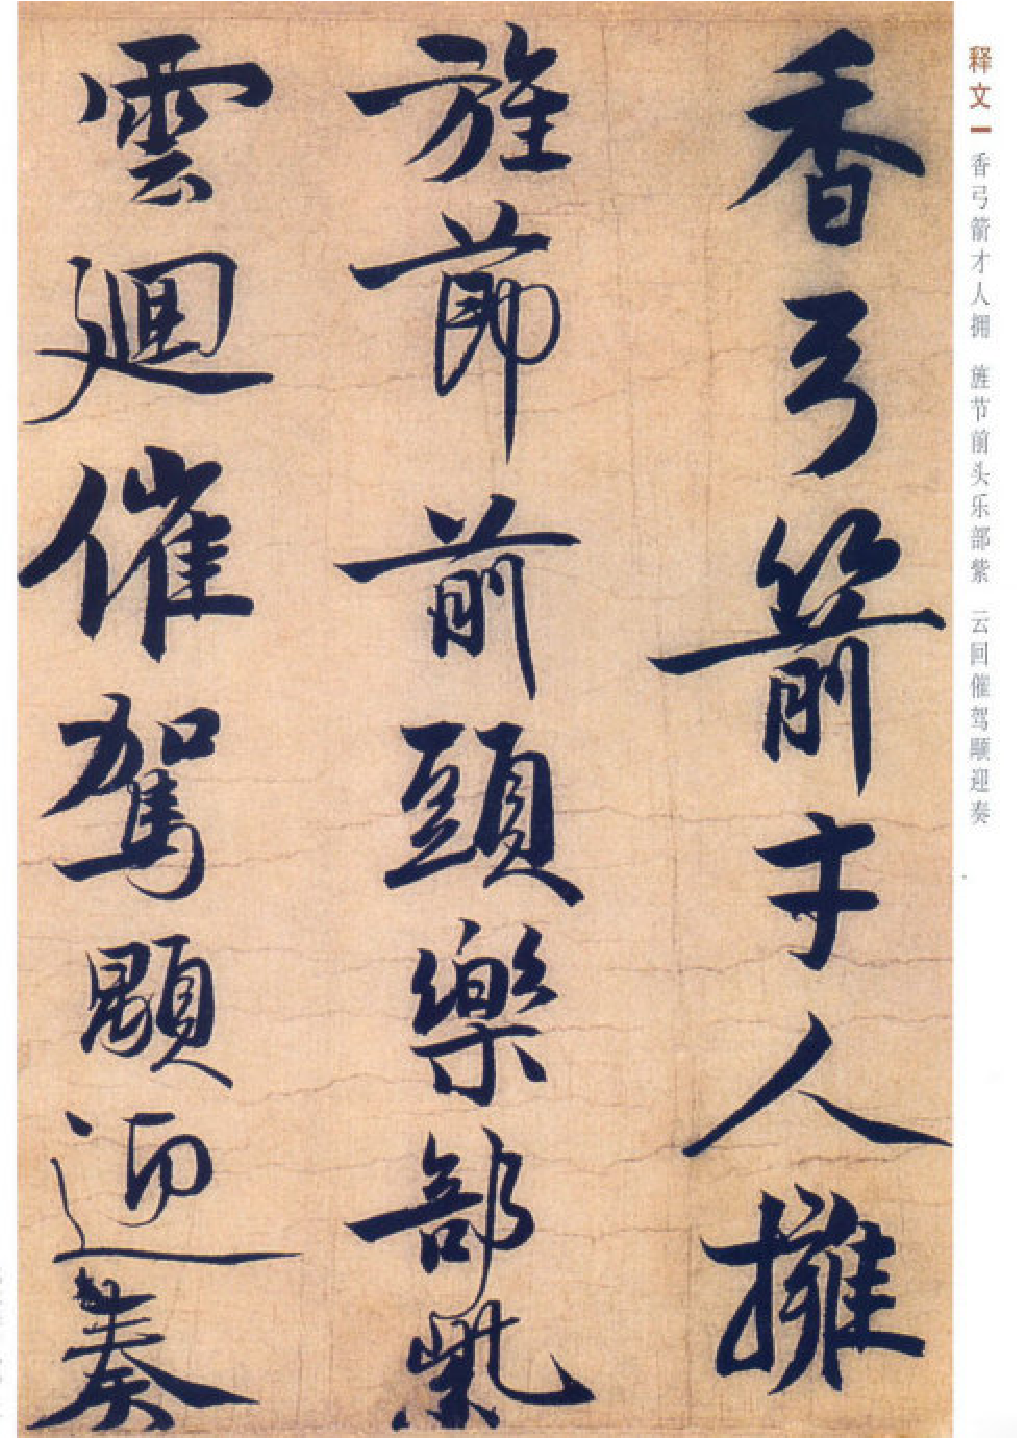 释文
香弓箭才人拥 旌节前头乐部紫 云回催驾顋迎奏
香弓箭才人擁
旌節前頭樂部紫
雲迴催駕顋迎奏